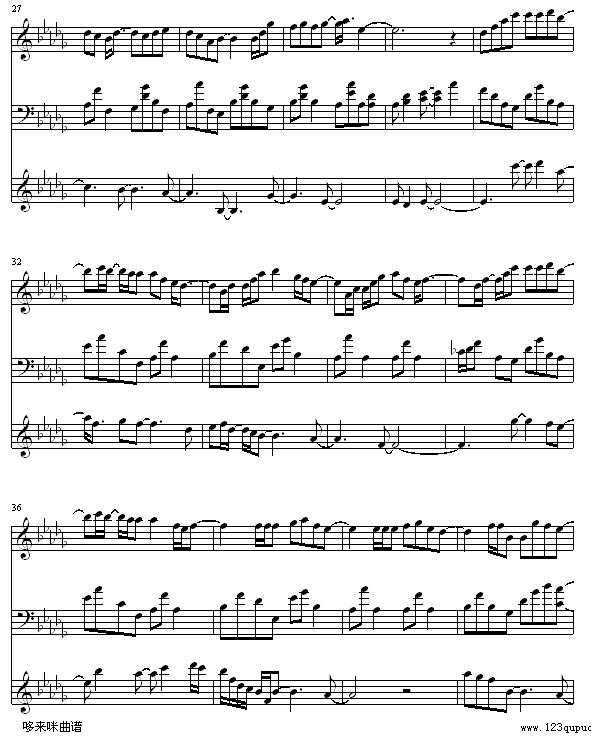 27
32
36
哆来咪曲谱
www.123qupu.c